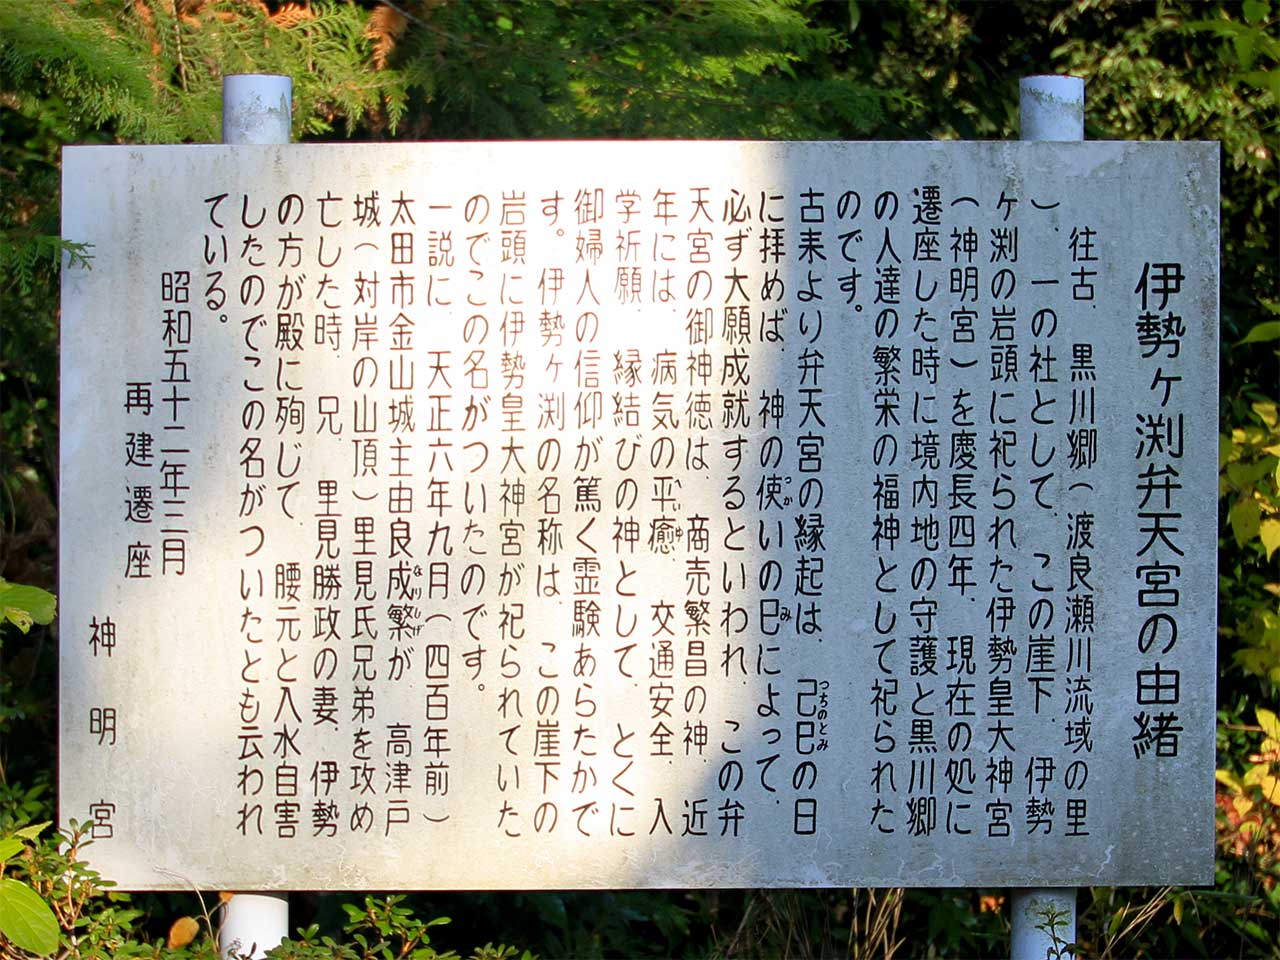 伊勢ヶ渕弁天宮の由緒
往古、黒川郷(渡良瀬川流域の里
)、一の社として、この崖下、伊勢
ヶ渕の岩頭に祀られた伊勢皇大神宮
(神明宮)を慶長四年、現在の処に
遷座した時に境内地の守護と黒川郷
の人達の繁栄の福神として祀られた
のです。
古来より弁天宮の縁起は、己巳の日
つちのとみ
に拝めば、神の使いの巳によって、
つか
み
必ず大願成就するといわれ、この弁
天宮の御神徳は、商売繁昌の神、近
年には、病気の平癒、交通安全、入
へいゆ
学祈願、縁結びの神として、とくに
御婦人の信仰が篤く霊験あらたかで
す。伊勢ヶ渕の名称は、この崖下の
岩頭に伊勢皇大神宮が祀られていた
のでこの名がついたのです。
一説に、天正六年九月(四百年前)
太田市金山城主由良成繁が、高津戸
なりしげ
城(対岸の山頂)里見氏兄弟を攻め
亡した時、兄、里見勝政の妻、伊勢
の方が殿に殉じて、腰元と入水自害
したのでこの名がついたとも云われ
ている。
昭和五十二年三月
再建遷座
神明宮